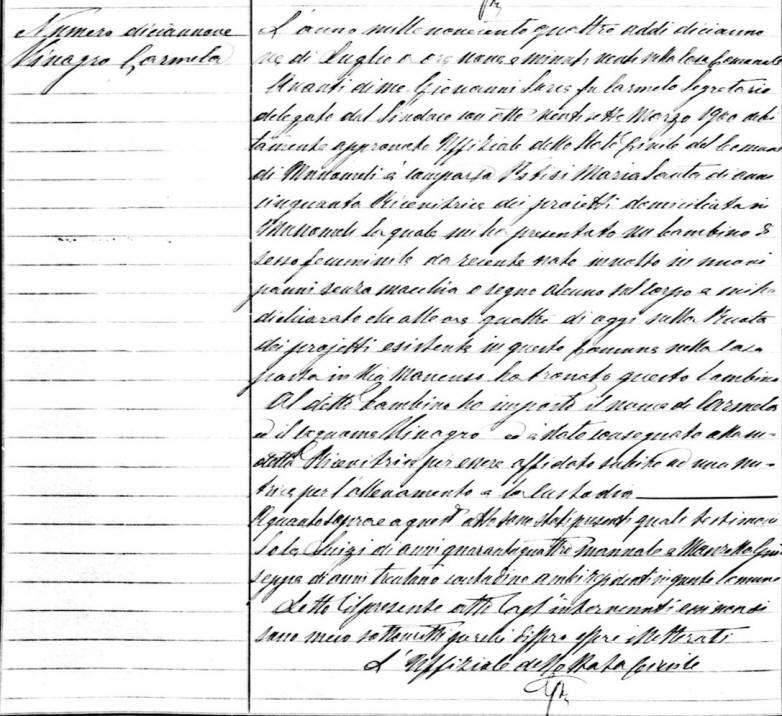 Numero diciannove
Vinagro Carmela
L'anno millenovecento quattro addì dicianno
ve di Luglio a ore nove e minuti venti nella Casa Comunale
Avanti di me Giovanni fu Carmelo Segretario
delegato dal Sindaco con atto ventisette Marzo 1900 debi
tamente approvato Uffiziale dello Stato Civile del Comune
di è comparsa Maria Santa di anni
cinquanta Ricevitrice dei proietti domiciliata in
la quale mi ha presentato un bambino di
sesso femminile da recente nato involto in nuovi
panni senza macchia o segno alcuno sul corpo e mi ha
dichiarato che alle ore quattro di oggi nella Ruota
dei projetti esistente in questo Comune nella casa
posta in Via Mancuso ha trovato questo bambino
Al detto bambino ho imposto il nome di Carmela
ed il cognome Vinagro ed è stato consegnato alla su-
detta Ricevitrice per essere affidato subito ad una nu-
trice per l'allevamento e la custodia
A quanto sopra e a quest'atto sono stati presenti quali testimoni
Luigi di anni quarantaquattro e Giu
seppe di anni trentuno contadino ambi residenti in questo Comune
Letto il presente atto agl'intervenuti essi non si
sono meco sottoscritti perché dissero essere illetterati
L'Uffiziale dello Stato Civile